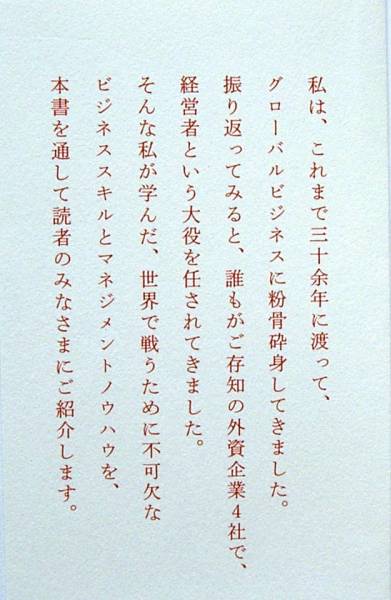 私は、これまで三十余年に渡って、
グローバルビジネスに粉骨砕身してきました。
振り返ってみると、誰もがご存知の外資企業4社で、
経営者という大役を任されてきました。
そんな私が学んだ、世界で戦うために不可欠な
ビジネススキルとマネジメントノウハウを、
本書を通して読者のみなさまにご紹介します。